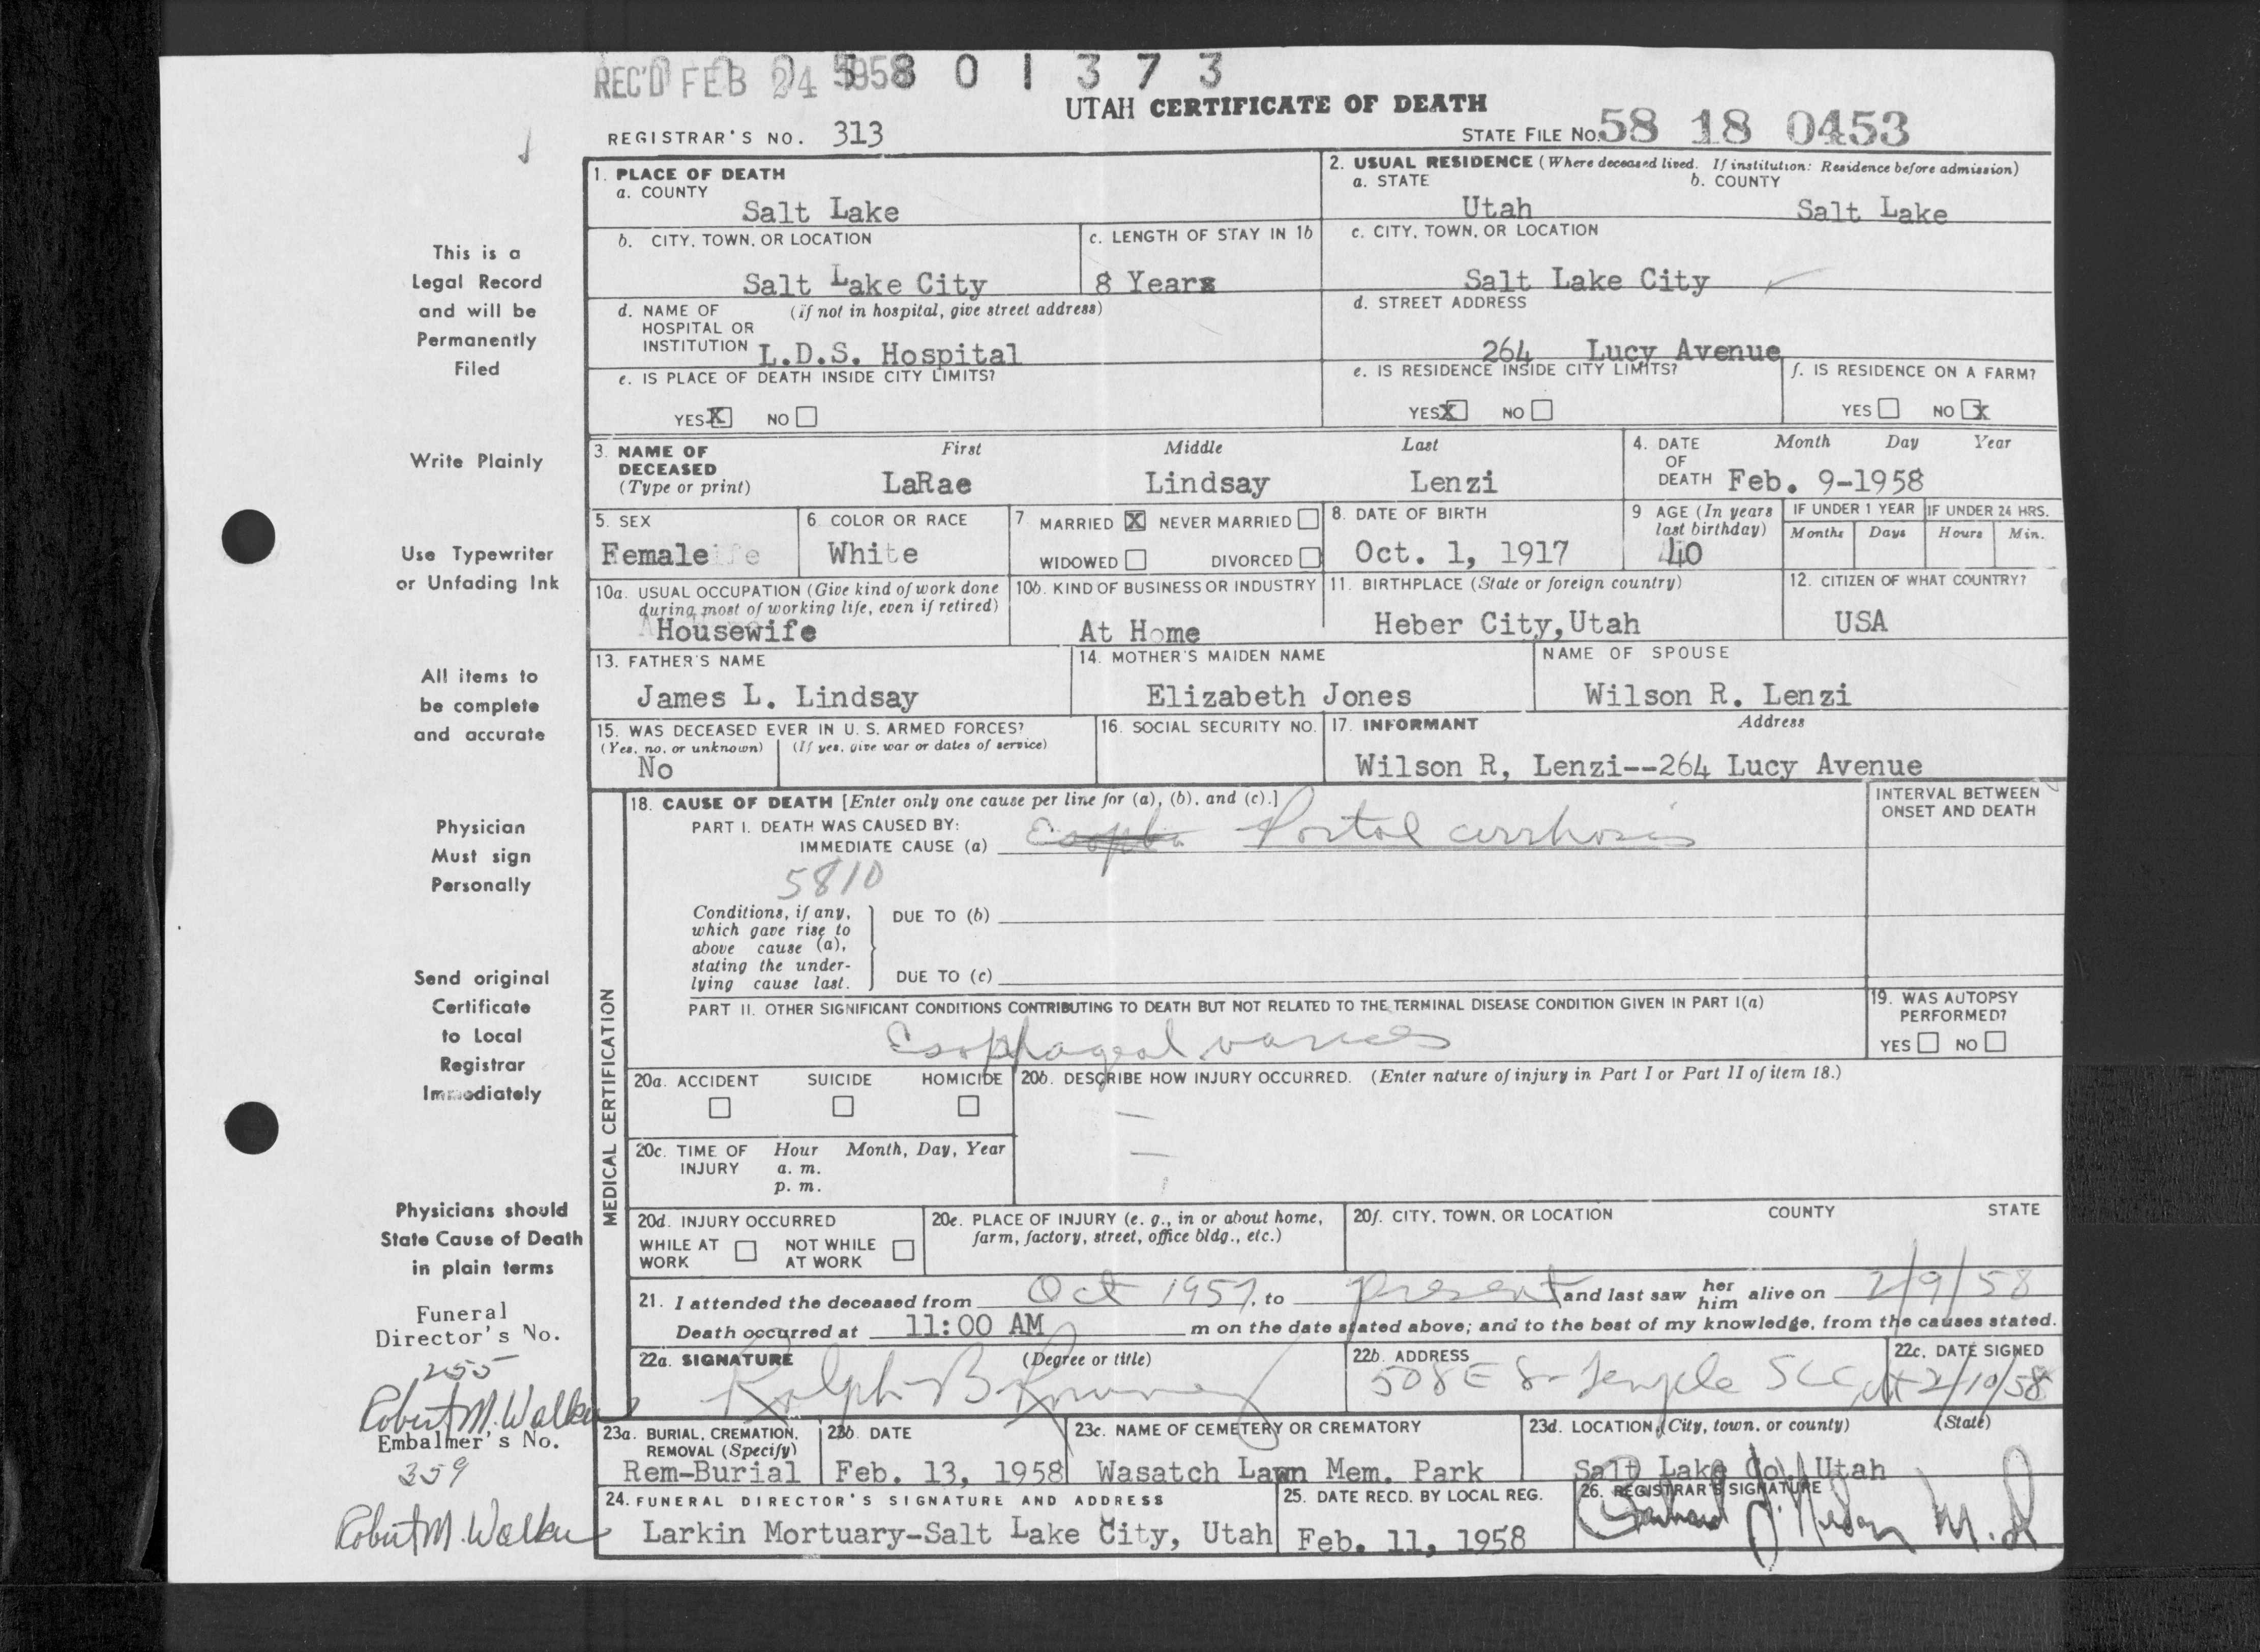 REC'D FEB 24 1958
5 8 0 1 3 7 3
UTAH CERTIFICATE OF DEATH
REGISTRAR'S NO. 313
STATE FILE NO. 58 18 0453
This is a
Legal Record
and will be
Permanently
Filed
Write Plainly
Use Typewriter
or Unfading Ink
All items to
be complete
and accurate
Physician
Must sign
Personally
Send original
Certificate
to Local
Registrar
Immediately
Physicians should
State Cause of Death
in plain terms
Funeral
Director's No.
255
Robert M. Walker
Embalmer's No.
359
Robert M. Walker
1. PLACE OF DEATH
a. COUNTY
Salt Lake
b. CITY, TOWN, OR LOCATION
Salt Lake City
c. LENGTH OF STAY IN 1b
8 Years
d. NAME OF HOSPITAL OR INSTITUTION (if not in hospital, give street address)
L.D.S. Hospital
e. IS PLACE OF DEATH INSIDE CITY LIMITS?
YES X NO
2. USUAL RESIDENCE (Where deceased lived. If institution: Residence before admission)
a. STATE
Utah
b. COUNTY
Salt Lake
c. CITY, TOWN, OR LOCATION
Salt Lake City
d. STREET ADDRESS
264 Lucy Avenue
e. IS RESIDENCE INSIDE CITY LIMITS?
YES X NO
f. IS RESIDENCE ON A FARM?
YES NO X
3. NAME OF DECEASED (Type or print)
First Middle Last
LaRae Lindsay Lenzi
4. DATE OF DEATH Month Day Year
Feb. 9-1958
5. SEX
Female
6. COLOR OR RACE
White
7 MARRIED X NEVER MARRIED
WIDOWED DIVORCED
8. DATE OF BIRTH
Oct. 1, 1917
9 AGE (In years last birthday)
40
IF UNDER 1 YEAR
Months Days
IF UNDER 24 HRS.
Hours Min.
10a. USUAL OCCUPATION (Give kind of work done during most of working life, even if retired)
Housewife
10b. KIND OF BUSINESS OR INDUSTRY
At Home
11. BIRTHPLACE (State or foreign country)
Heber City, Utah
12. CITIZEN OF WHAT COUNTRY?
USA
13. FATHER'S NAME
James L. Lindsay
14. MOTHER'S MAIDEN NAME
Elizabeth Jones
NAME OF SPOUSE
Wilson R. Lenzi
15. WAS DECEASED EVER IN U. S. ARMED FORCES?
(Yes, no, or unknown) (If yes, give war or dates of service)
No
16. SOCIAL SECURITY NO.
17. INFORMANT Address
Wilson R, Lenzi--264 Lucy Avenue
MEDICAL CERTIFICATION
18. CAUSE OF DEATH [Enter only one cause per line for (a), (b), and (c).]
PART I. DEATH WAS CAUSED BY:
IMMEDIATE CAUSE (a) Esopha Portal cirrhosis
5810
INTERVAL BETWEEN ONSET AND DEATH
Conditions, if any, which gave rise to above cause (a), stating the underlying cause last.
DUE TO (b)
DUE TO (c)
PART II. OTHER SIGNIFICANT CONDITIONS CONTRIBUTING TO DEATH BUT NOT RELATED TO THE TERMINAL DISEASE CONDITION GIVEN IN PART I(a)
Esophageal varices
19. WAS AUTOPSY PERFORMED?
YES NO
20a. ACCIDENT SUICIDE HOMICIDE
20b. DESCRIBE HOW INJURY OCCURRED. (Enter nature of injury in Part I or Part II of item 18.)
20c. TIME OF INJURY Hour Month, Day, Year
a. m.
p. m.
20d. INJURY OCCURRED
WHILE AT WORK NOT WHILE AT WORK
20e. PLACE OF INJURY (e. g., in or about home, farm, factory, street, office bldg., etc.)
20f. CITY, TOWN, OR LOCATION COUNTY STATE
21. I attended the deceased from Oct 1957, to present and last saw her him alive on 2/9/58
Death occurred at 11:00 AM m on the date stated above; and to the best of my knowledge, from the causes stated.
22a. SIGNATURE (Degree or title)
Ralph B
22b. ADDRESS
508 E So Temple SLC Ut
22c. DATE SIGNED
2/10/58
23a. BURIAL, CREMATION, REMOVAL (Specify)
Rem-Burial
23b. DATE
Feb. 13, 1958
23c. NAME OF CEMETERY OR CREMATORY
Wasatch Lawn Mem. Park
23d. LOCATION (City, town, or county) (State)
Salt Lake Co. Utah
24. FUNERAL DIRECTOR'S SIGNATURE AND ADDRESS
Larkin Mortuary-Salt Lake City, Utah
25. DATE RECD. BY LOCAL REG.
Feb. 11, 1958
26. REGISTRAR'S SIGNATURE
M.D